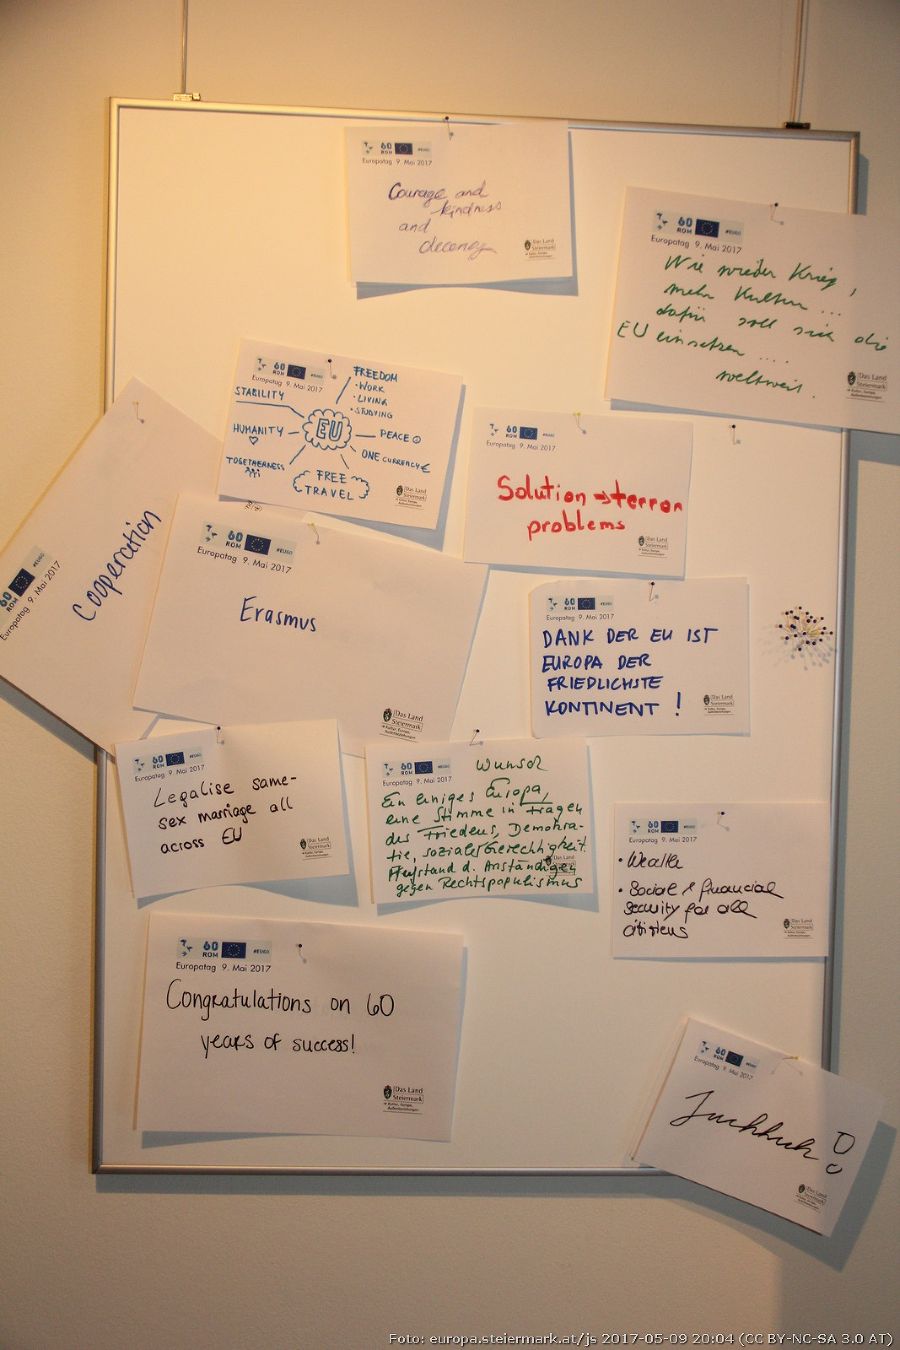 60
ROM
#EU60
Europatag 9. Mai 2017
Courage and
kindness
and
decency
Das Land
Steiermark
60
ROM
#EU60
Europatag 9. Mai 2017
Nie wieder Krieg,
mehr Kultur...
dafür soll sich die
EU einsetzen ....
weltweit.
Das Land
Steiermark
60
ROM
Europatag 9. Mai 2017
STABILITY
HUMANITY
TOGETHERNESS
EU
FREEDOM
• WORK
• LIVING
• STUDYING
PEACE
ONE CURRENCY €
FREE
TRAVEL
Das Land
Steiermark
60
ROM
Europatag 9. Mai 2017
Solution → terror
problems
Das Land
Steiermark
60
ROM
#EU60
Europatag 9. Mai 2017
Cooperation
60
ROM
#EU60
Europatag 9. Mai 2017
Erasmus
Das Land
Steiermark
60
ROM
#EU60
Europatag 9. Mai 2017
DANK DER EU IST
EUROPA DER
FRIEDLICHSTE
KONTINENT !
Das Land
Steiermark
60
ROM
#EU60
Europatag 9. Mai 2017
Legalise same-
sex marriage all
across EU
Das Land
Steiermark
60
ROM
Europatag 9. Mai 2017
Wunsch
Ein einiges Europa,
eine Stimme in Fragen
des Friedens, Demokra-
tie, sozialer Gerechtigkeit.
Aufstand d. Anständigen
gegen Rechtspopulismus
Das Land
60
ROM
#EU60
Europatag 9. Mai 2017
• Wealth
• Social & financial
security for all
citizens
Das Land
Steiermark
60
ROM
#EU60
Europatag 9. Mai 2017
Congratulations on 60
years of success!
Das Land
Steiermark
60
ROM
#EU60
Europatag 9. Mai 2017
Juchhuh!
Das Land
Steiermark
Foto: europa.steiermark.at/js 2017-05-09 20:04 (CC BY-NC-SA 3.0 AT)